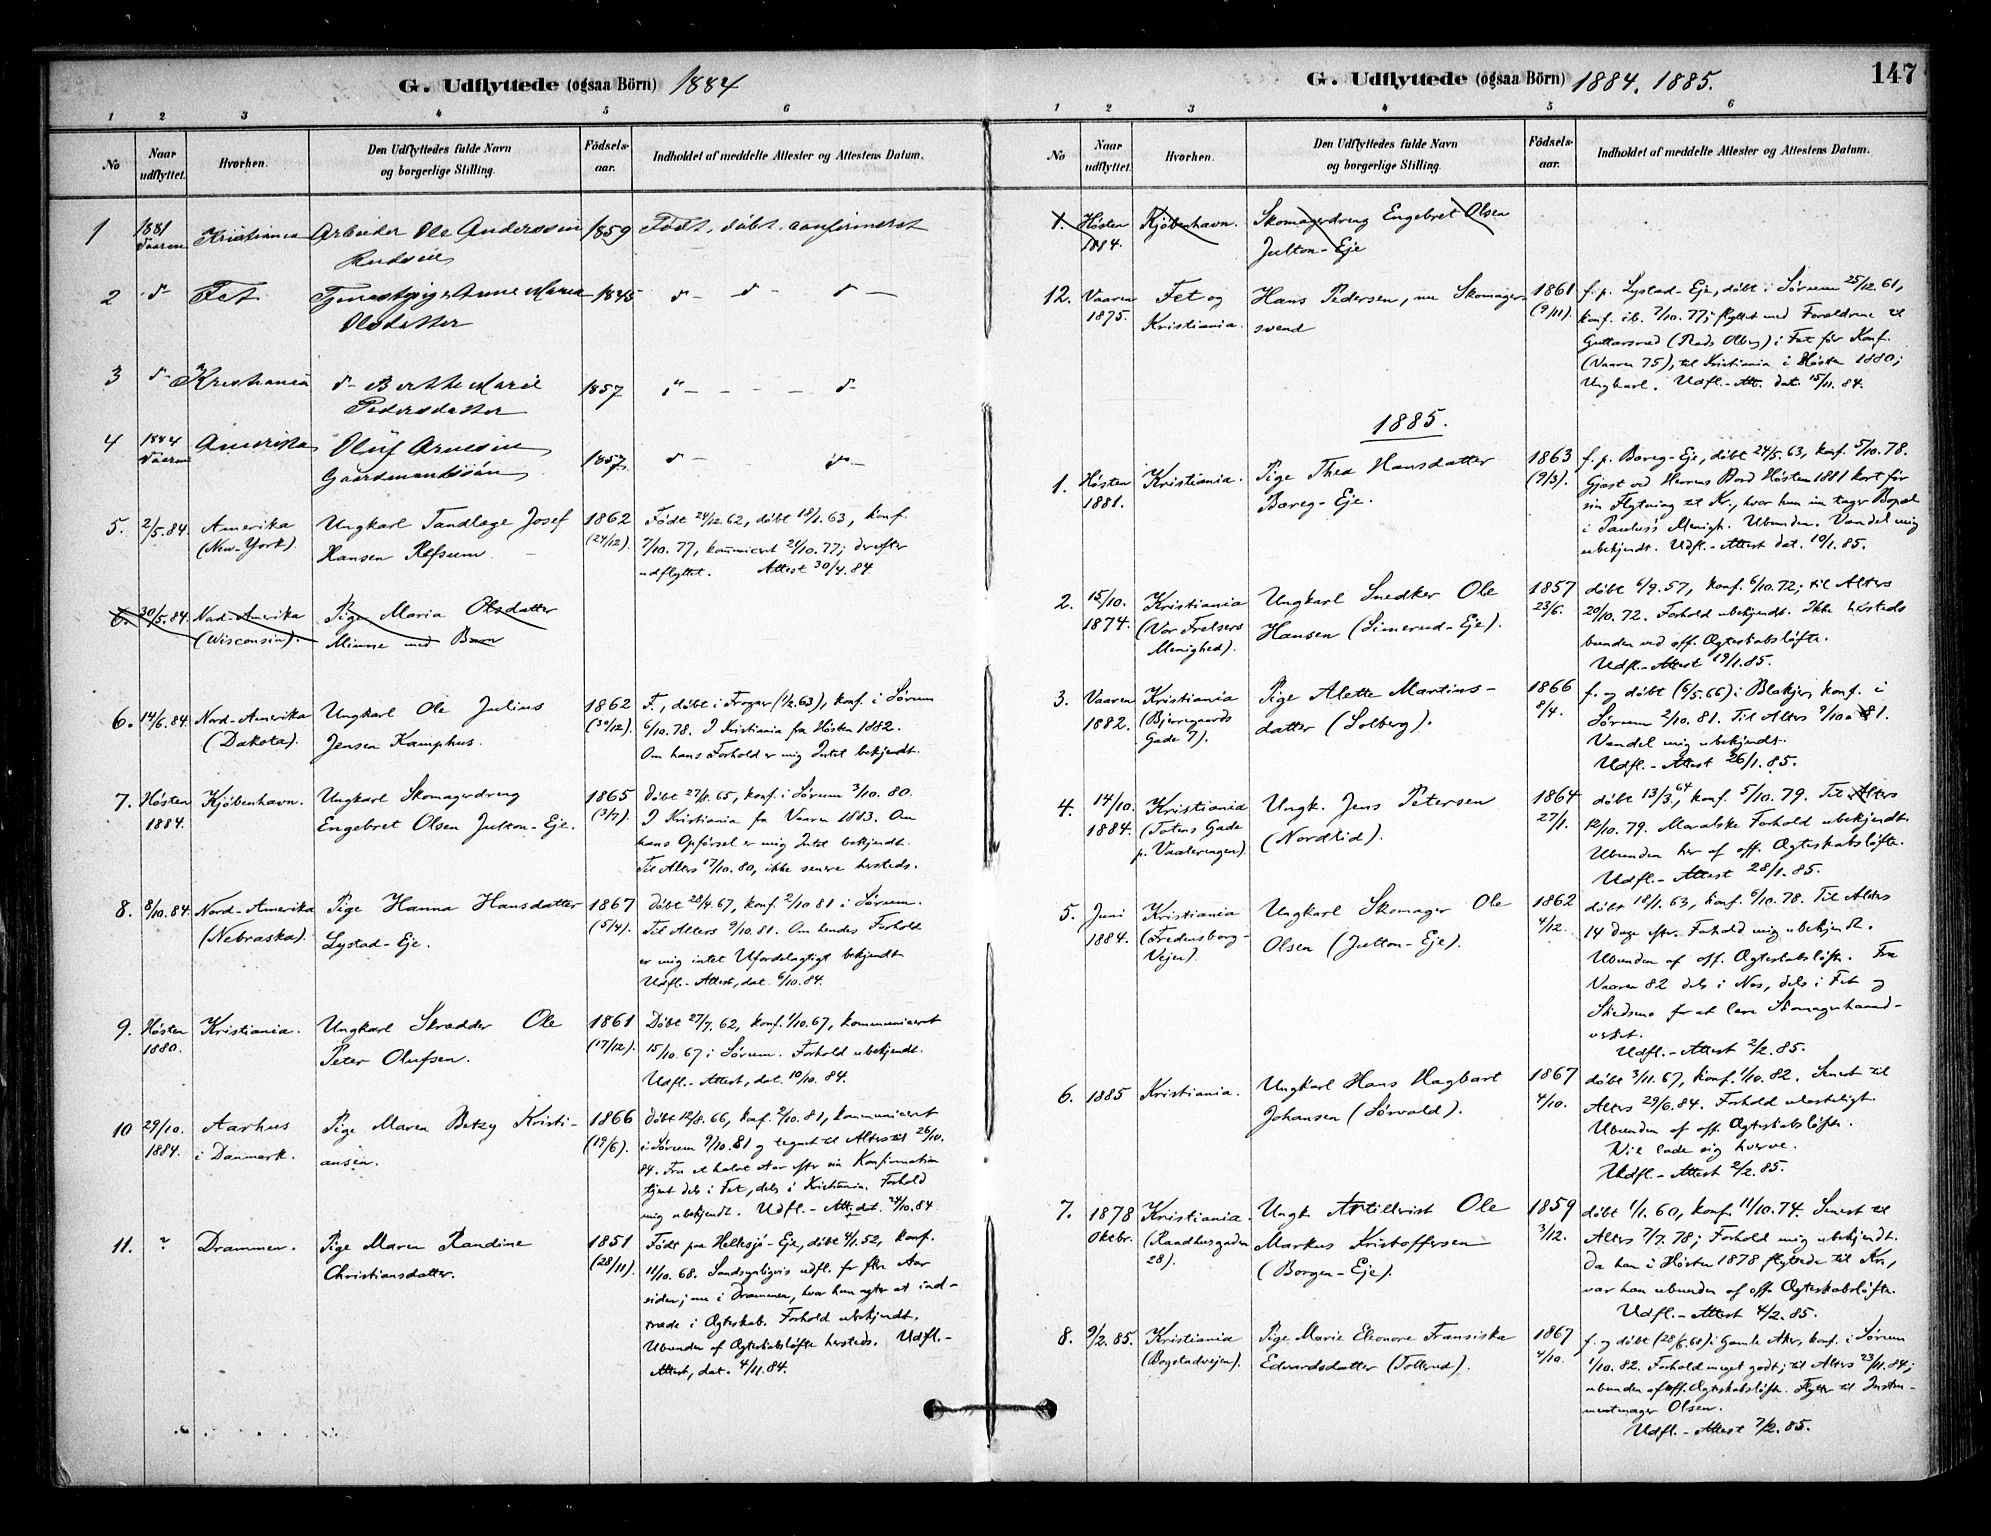 G. Udflyttede (ogsaa Börn) 1884
1 2 3 4 5 6
No
Naar udflyttet.
Hvorhen.
Den Udflyttedes fulde Navn
og borgerlige Stilling.
Födsels-
aar.
Indholdet af meddelte Attester og Attestens Datum.
1 1881 Vaaren Kristiania Arbeider Ole Anderssen 1859 Födt, döbt, confirmeret
2 d- Fet Tjenestpige Anne Maria 1845 d- d- d-
Olsdatter
3 d- Kristiania d- Berthe Marie 1857 d-
Pedersdatter
4 1884 Vaaren Amerika Oluf Arnesen 1857 d- d-
Gaardmandssön
5. 2/5.84 Amerika Ungkarl Tandlæge Josef 1862 Födt 24/12.62, döbt 18/1.63, konf.
(New-York). Hansen Refsum (24/12). 7/10.77, kommunicert 21/10.77; derefter
udflyttet. Attest 30/4.84.
6. 30/5.84. Nord-Amerika Pige Maria Olsdatter
(Wisconsin). Minne med Barn
6. 14/6.84 Nord-Amerika Ungkarl Ole Julius 1862 F., döbt i Frogner (1/2.63), konf. i Sörum
(Dakota). Jensen Kamphus. (30/12). 6/10.78. I Kristiania fra Hösten 1882.
Om hans Forhold er mig Intet bekjendt.
7. Hösten Kjöbenhavn. Ungkarl Skomagerdreng 1865 Döbt 27/8.65, konf. i Sörum 3/10.80.
1884. Engebret Olsen Julton-Eje. (3/7). I Kristiania fra Vaaren 1883. Om
hans Opförsel er mig Intet bekjendt.
Til Alters 17/10.80, ikke senere hersteds.
8. 8/10.84. Nord-Amerika Pige Hanna Hansdatter 1867 Döbt 28/4.67, konf. 2/10 81 i Sörum.
(Nebraska). Lystad-Eje. (5/4). Til Alters 9/10.81. Om hendes Forhold
er mig intet Ufordelagtigt bekjendt
Udfl.-Attest, dat. 6/10.84.
9. Hösten Kristiania. Ungkarl Skrædder Ole 1861 Döbt 27/7.62, konf. 1/10.67, kommuniceret
1880. Peter Olufsen. (17/12). 15/10.67 i Sörum. Forhold ubekjendt.
Udfl.-Attest, dat. 10/10.84.
10 29/10. Aarhus Pige Maren Betzy Kristi- 1866 Döbt 12/8.66, konf. 2/10.81, kommuniceret
1884. i Danmark. ansen. (19/6). i Sörum 9/10.81 og tegnet til Alters til 26/10.
84. Fra et halvt Aar efter sin Konfirmation
tjent dels i Fet, dels i Kristiania. Forhold
mig ubekjendt. Udfl.-Att. dat. 24/10.84
11. ? Drammen. Pige Maren Randine 1851 Födt paa Helksjö-Eje, döbt 4/1.52, konf.
Christiansdatter. (28/11). 11/10.68. Sandsynligvis udfl. for flere Aar
siden; nu i Drammen, hvor hun agter at ind-
træde i Ægteskab. Forhold ubekjendt.
Ubunden af Ægteskabslöfte hersteds. Udfl.-
Attest, dat. 4/11.84.
G. Udflyttede (ogsaa Börn) 1884. 1885. 147
1 2 3 4 5 6
No
Naar
udflyttet.
Hvorhen.
Den Udflyttedes fulde Navn
og borgerlige Stilling.
Födsels-
aar.
Indholdet af meddelte Attester og Attestens Datum.
1. Hösten Kjöbenhavn. Skomagerdreng Engebret Olsen
1884. Julton-Eje
12. Vaaren Fet og Hans Pedersen, nu Skomager- 1861 f. p. Lystad-Eje, döbt i Sörum 25/12.61,
1875. Kristiania. svend (9/11). konf. ib. 7/10.77; flyttet med Forældrene til
Guttersrud i Fet för Konf.
(Vaaren 75), til Kristiania i Hösten 1880;
Ungkarl. Udfl.-Att. dat. 15/11.84.
1885.
1. Hösten Kristiania. Pige Thea Hansdatter 1863 f. p. Bæreg-Eje, döbt 24/5.63, konf. 5/10.78.
1881. Bæreg-Eje. (9/3). Gjæst ved Herrens Bord Hösten 1881 kort för
sin Flytning til Kr., hvor hun nu tager Bopæl
i Paulus's Menigh. Ubunden. Vandel mig
ubekjendt. Udfl.-Attest dat. 10/1.85.
2. 15/10. Kristiania Ungkarl Snedker Ole 1857 döbt 6/9.57, konf. 6/10.72; til Alters
1874. (Vor Frelsers Hansen (Limerud-Eje). 23/6. 20/10.72. Forhold ubekjendt. Ikke hersteds
Menighed). bunden ved off. Ægteskabslöfte.
Udfl.-Attest 19/1.85.
3. Vaaren Kristiania Pige Alette Martins- 1866 f. og döbt (6/5.66) i Blakjer, konf. i
1882. (Bjerregaards datter (Solberg). 8/4. Sörum 2/10.81. Til Alters 9/10.81.
Gade 7). Vandel mig ubekjendt.
Udfl.-Attest 26/1.85.
4. 14/10. Kristiania Ungk. Jens Petersen 1864 döbt 13/3.64, konf. 5/10.79. Til Alters
1884. (Totens Gade (Nordlid). 27/1. 12/10.79. Moralske Forhold ubekjendt.
p. Vaalerengen). Ubunden her af off. Ægteskabslöfte.
Udfl.-Attest 28/1.85.
5. Juni Kristiania Ungkarl Skomager Ole 1862 döbt 18/1.63, konf. 6/10.78. Til Alters
1884. (Fredensborg- Olsen (Julton-Eje). 4/12. 14 Dage efter. Forhold mig ubekjendt.
Vejen). Ubunden af off. Ægteskabslöfte. Fra
Vaaren 82 dels i Nes, dels i Fet og
Skedsmo for at lære Skomagerhaand-
verket.
Udfl.-Attest 2/2.85.
6. 1885 Kristiania. Ungkarl Hans Hagbart 1867 döbt 3/11.67, konf. 1/10.82. Senest til
Johansen (Sörvald). 4/10. Alters 29/6.84. Forhold ulasteligt.
Ubunden af off. Ægteskabslöfte.
Vil lade sig hverve.
Udfl.-Attest 2/2.85.
7. 1878 Kristiania. Ungk. Artillerist Ole 1859 döbt 1/1.60, konf. 11/10.74. Senest til
Oktbr. (Raadhusgaden Markus Kristoffersen 3/12. Alters 7/7.78; Forhold mig ubekjendt.
28). (Borgen-Eje). Da han i Hösten 1878 flyttede til Kr.,
var han ubunden af off. Ægteskabslöfte.
Udfl.-Attest 4/2.85.
8. 9/2.85. Kristiania Pige Marie Elenore Fransiska 1867 f. og döbt i Gamle Aker, konf. i Sörum
(Bogstadvejen). Edvardsdatter (Tollerud). 4/10. 1/10.82. Forhold meget godt; til Alters 23/11.84;
ubunden af off. Ægteskabslöfte. Flytter til Instru-
mentmager Olsen.
Udfl.-Attest 7/2.85.